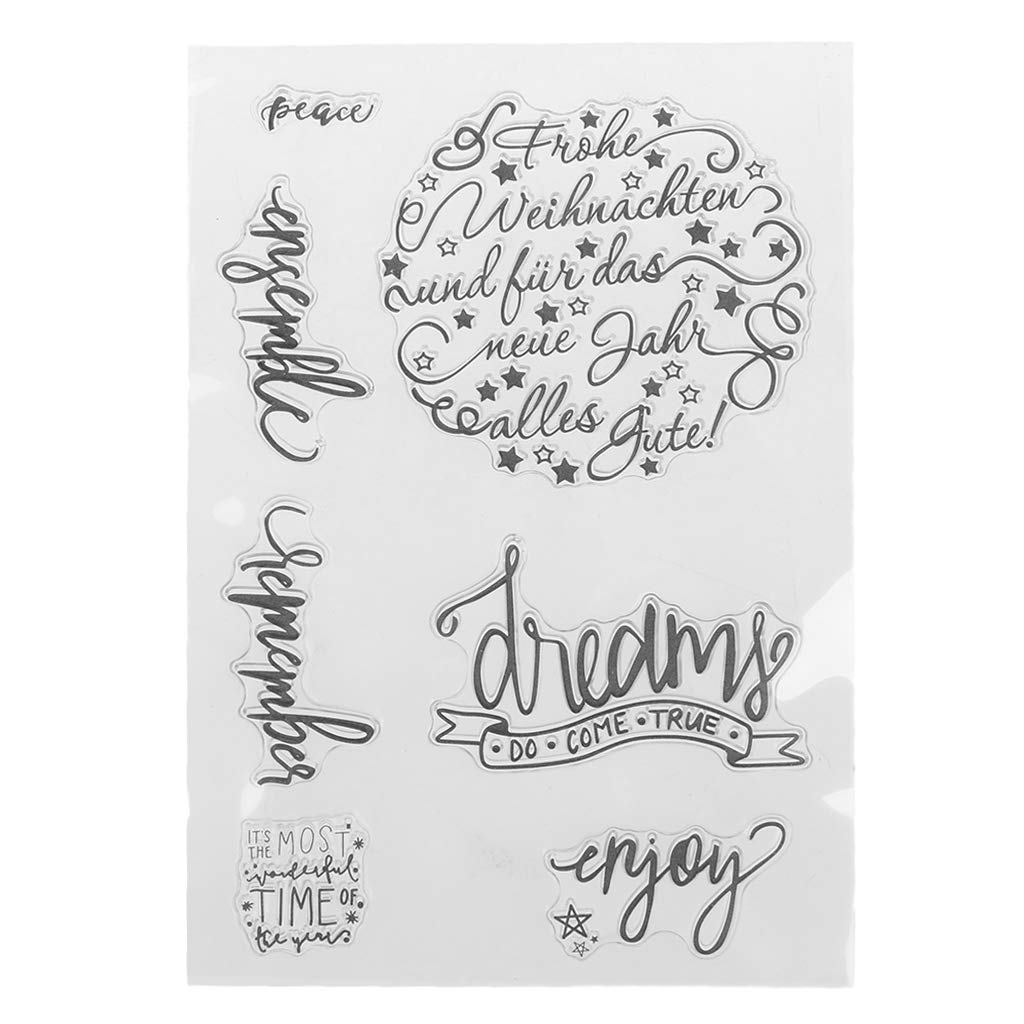 peace
Frohe
Weihnachten
und für das
neue Jahr
alles Gute!
ensemble
remember
dreams
DO • COME • TRUE
IT'S THE MOST
wonderful
TIME OF
the year
enjoy